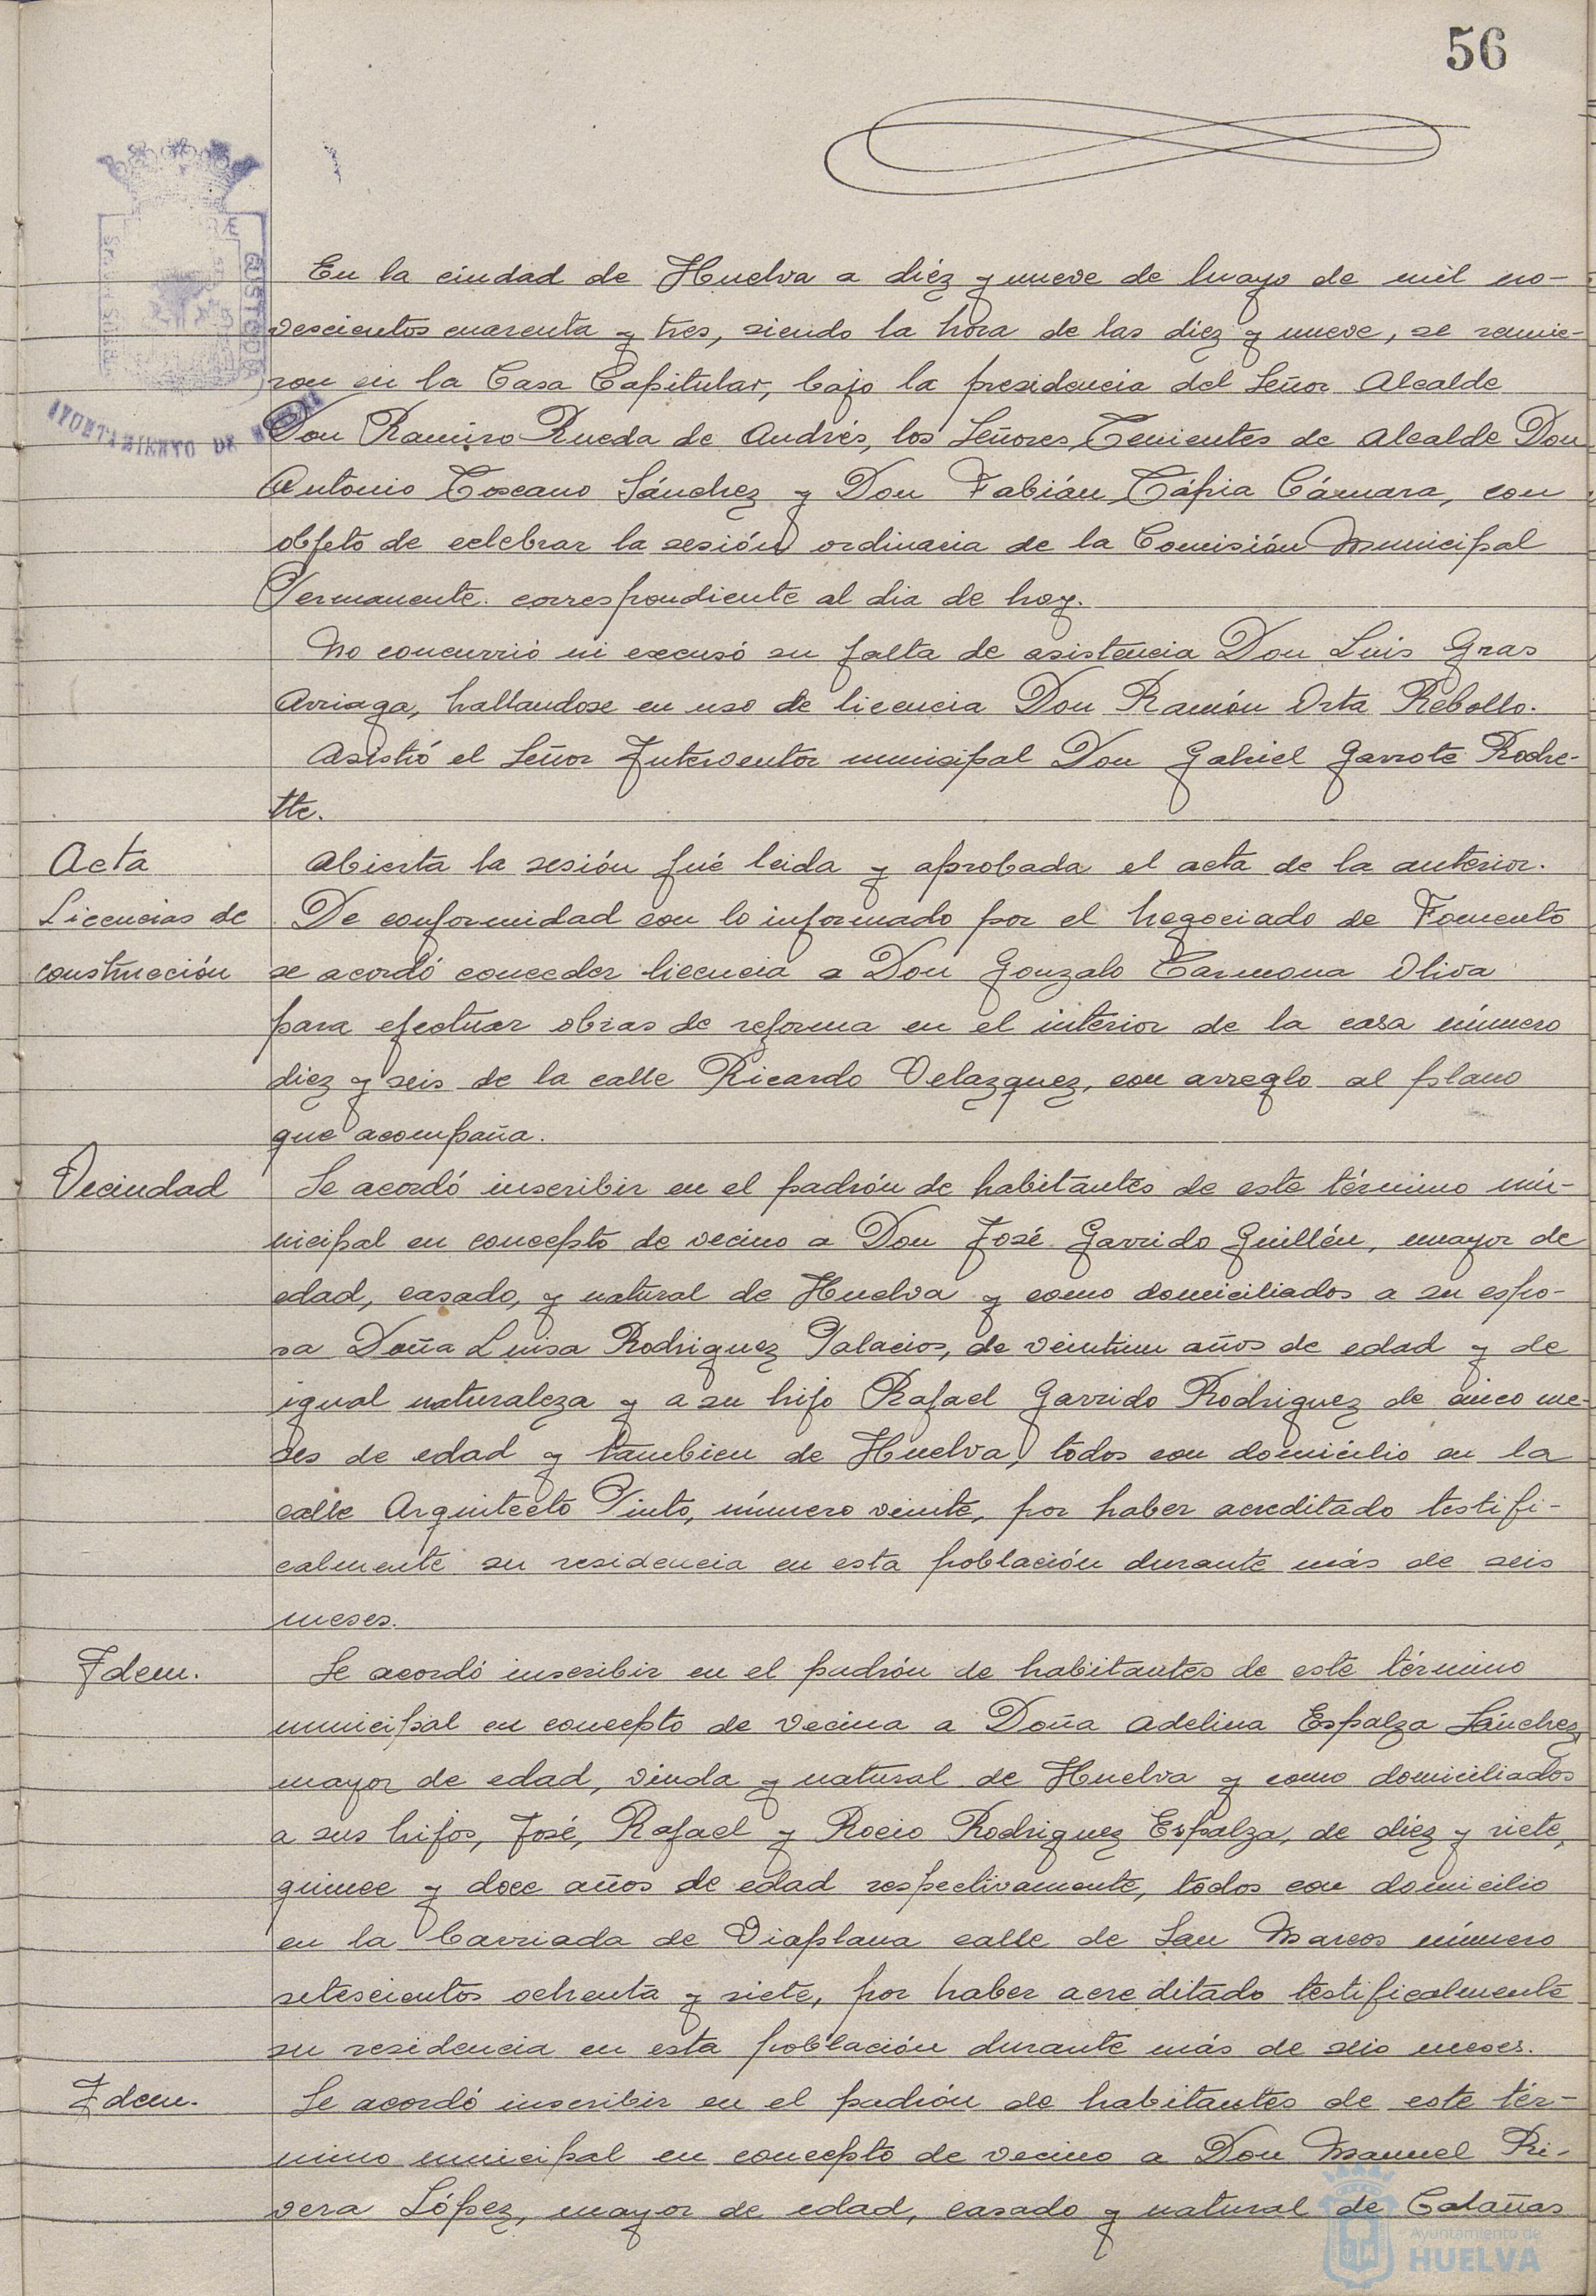 56
En la ciudad de Huelva a diéz y nueve de Mayo de mil no-
vescientos cuarenta y tres, siendo la hora de las diez y nueve, se reunie-
ron en la Casa Capitular, bajo la presidencia del Señor Alcalde
Don Ramiro Rueda de Andrés, los Señores Tenientes de Alcalde Don
Antonio Toscano Sánchez y Don Fabián Tápia Cámara, con
objeto de celebrar la sesión ordinaria de la Comisión Municipal
Permanente correspondiente al dia de hoy.
No concurrió ni excusó su falta de asistencia Don Luis Gras
Arriaga, hallandose en uso de licencia Don Ramón Orta Rebollo.
Asistió el Señor Interventor municipal Don Gabriel Garrote Roche-
tte.
Acta
Abierta la sesión fué leida y aprobada el acta de la anterior.
Licencias de
construcción
De conformidad con lo informado por el Negociado de Fomento
se acordó conceder licencia a Don Gonzalo Carmona Oliva
para efectuar obras de reforma en el interior de la casa número
diez y seis de la calle Ricardo Velazquez, con arreglo al plano
que acompaña.
Vecindad
Se acordó inscribir en el padrón de habitantes de este término mu-
nicipal en concepto de vecino a Don José Garrido Guillén, mayor de
edad, casado, y natural de Huelva y como domiciliados a su espo-
sa Doña Luisa Rodriguez Palacios, de veintiun años de edad y de
igual naturaleza y a su hijo Rafael Garrido Rodriguez de cinco me-
ses de edad y tambien de Huelva, todos con domicilio en la
calle Arquitecto Pinto, número veinte, por haber acreditado testifi-
calmente su residencia en esta población durante más de seis
meses.
Idem.
Se acordó inscribir en el padrón de habitantes de este término
municipal en concepto de vecina a Doña Adelina Espalza Sánchez,
mayor de edad, viuda y natural de Huelva y como domiciliados
a sus hijos, José, Rafael y Rocio Rodriguez Espalza, de diez y siete,
quince y doce años de edad respectivamente, todos con domicilio
en la barriada de Viaplana calle de San Marcos número
setescientos ochenta y siete, por haber acreditado testificalmente
su residencia en esta población durante más de seis meses.
Idem.
Se acordó inscribir en el padrón de habitantes de este tér-
mino municipal en concepto de vecino a Don Manuel Ri-
vera López, mayor de edad, casado y natural de Calañas
AYUNTAMIENTO DE
CUSTODIA
Ayuntamiento de
HUELVA